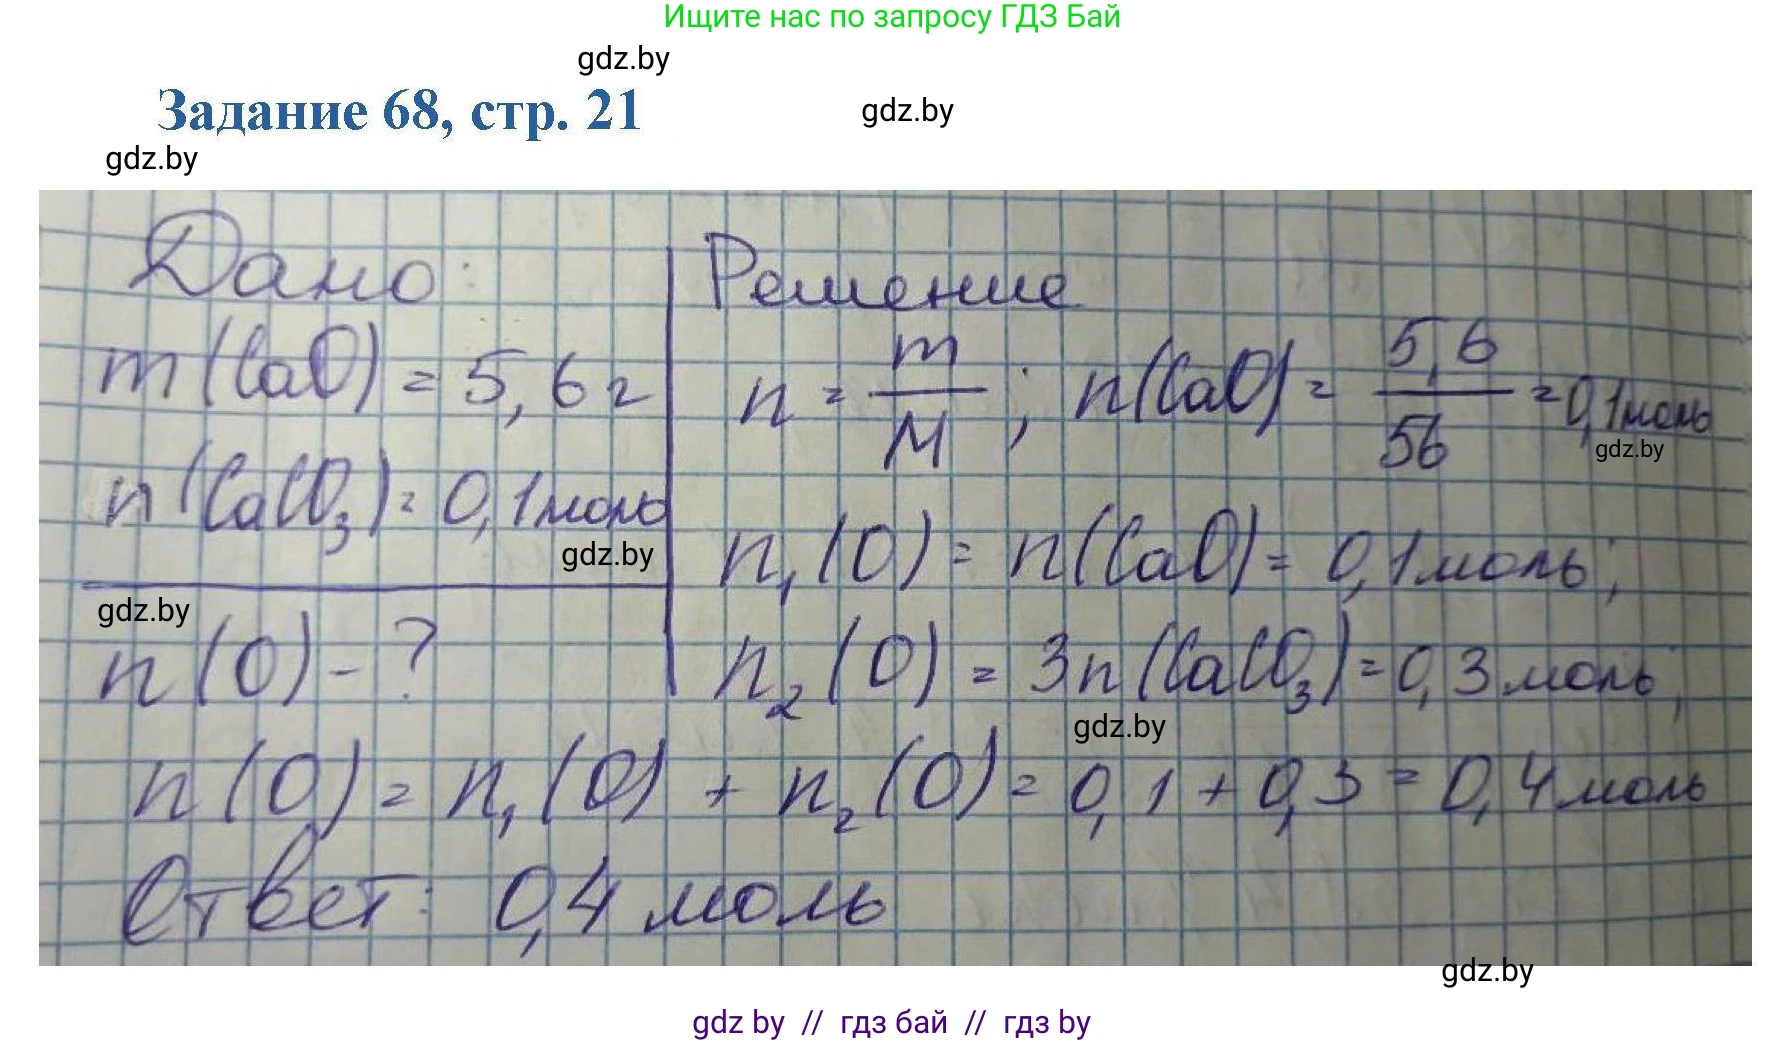 Ищите нас по запросу ГДЗ Бай
gdz.by
Задание 68, стр. 21
gdz.by
gdz.by
Дано:
m(CaO) = 5,6 г
n(CaCO₃) = 0,1 моль
gdz.by
gdz.by
n(O) - ?
Решение
n = m/M ; n(CaO) = 5,6/56 = 0,1 моль
gdz.by
n₁(O) = n(CaO) = 0,1 моль;
n₂(O) = 3n(CaCO₃) = 0,3 моль;
gdz.by
n(O) = n₁(O) + n₂(O) = 0,1 + 0,3 = 0,4 моль
Ответ: 0,4 моль
gdz.by
gdz by // гдз бай // гдз by